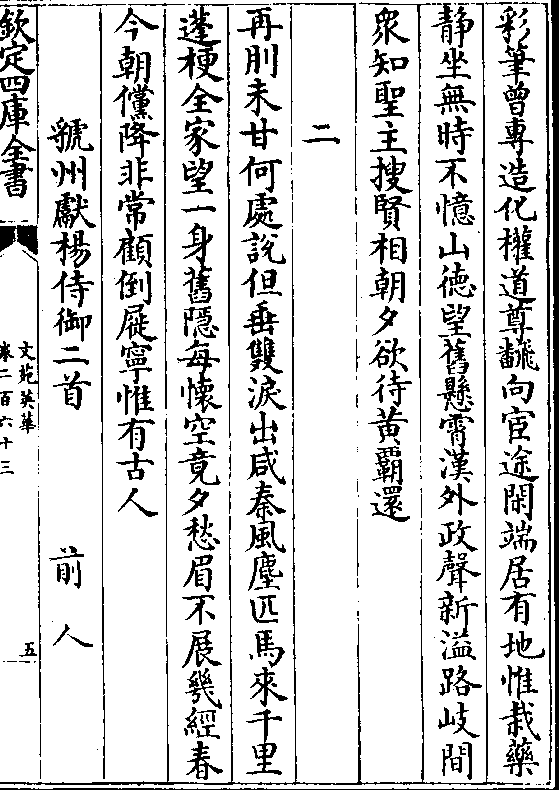 彩筆曾專造化權道尊飜向宦途閑端居有地惟栽藥
静坐無時不憶山徳望舊懸霄漢外政聲新溢路岐間
衆知聖主搜賢相朝夕欲待黄霸還
二
再刖未甘何處說但垂雙淚出咸秦風塵匹馬來千里
蓬梗全家望一身舊隠每懷空竟夕愁眉不展幾經春
今朝儻降非常顧倒屣寧惟有古人
虢州獻楊侍御二首 前人
欽定四庫全書
文苑英華
卷二百六十三
五